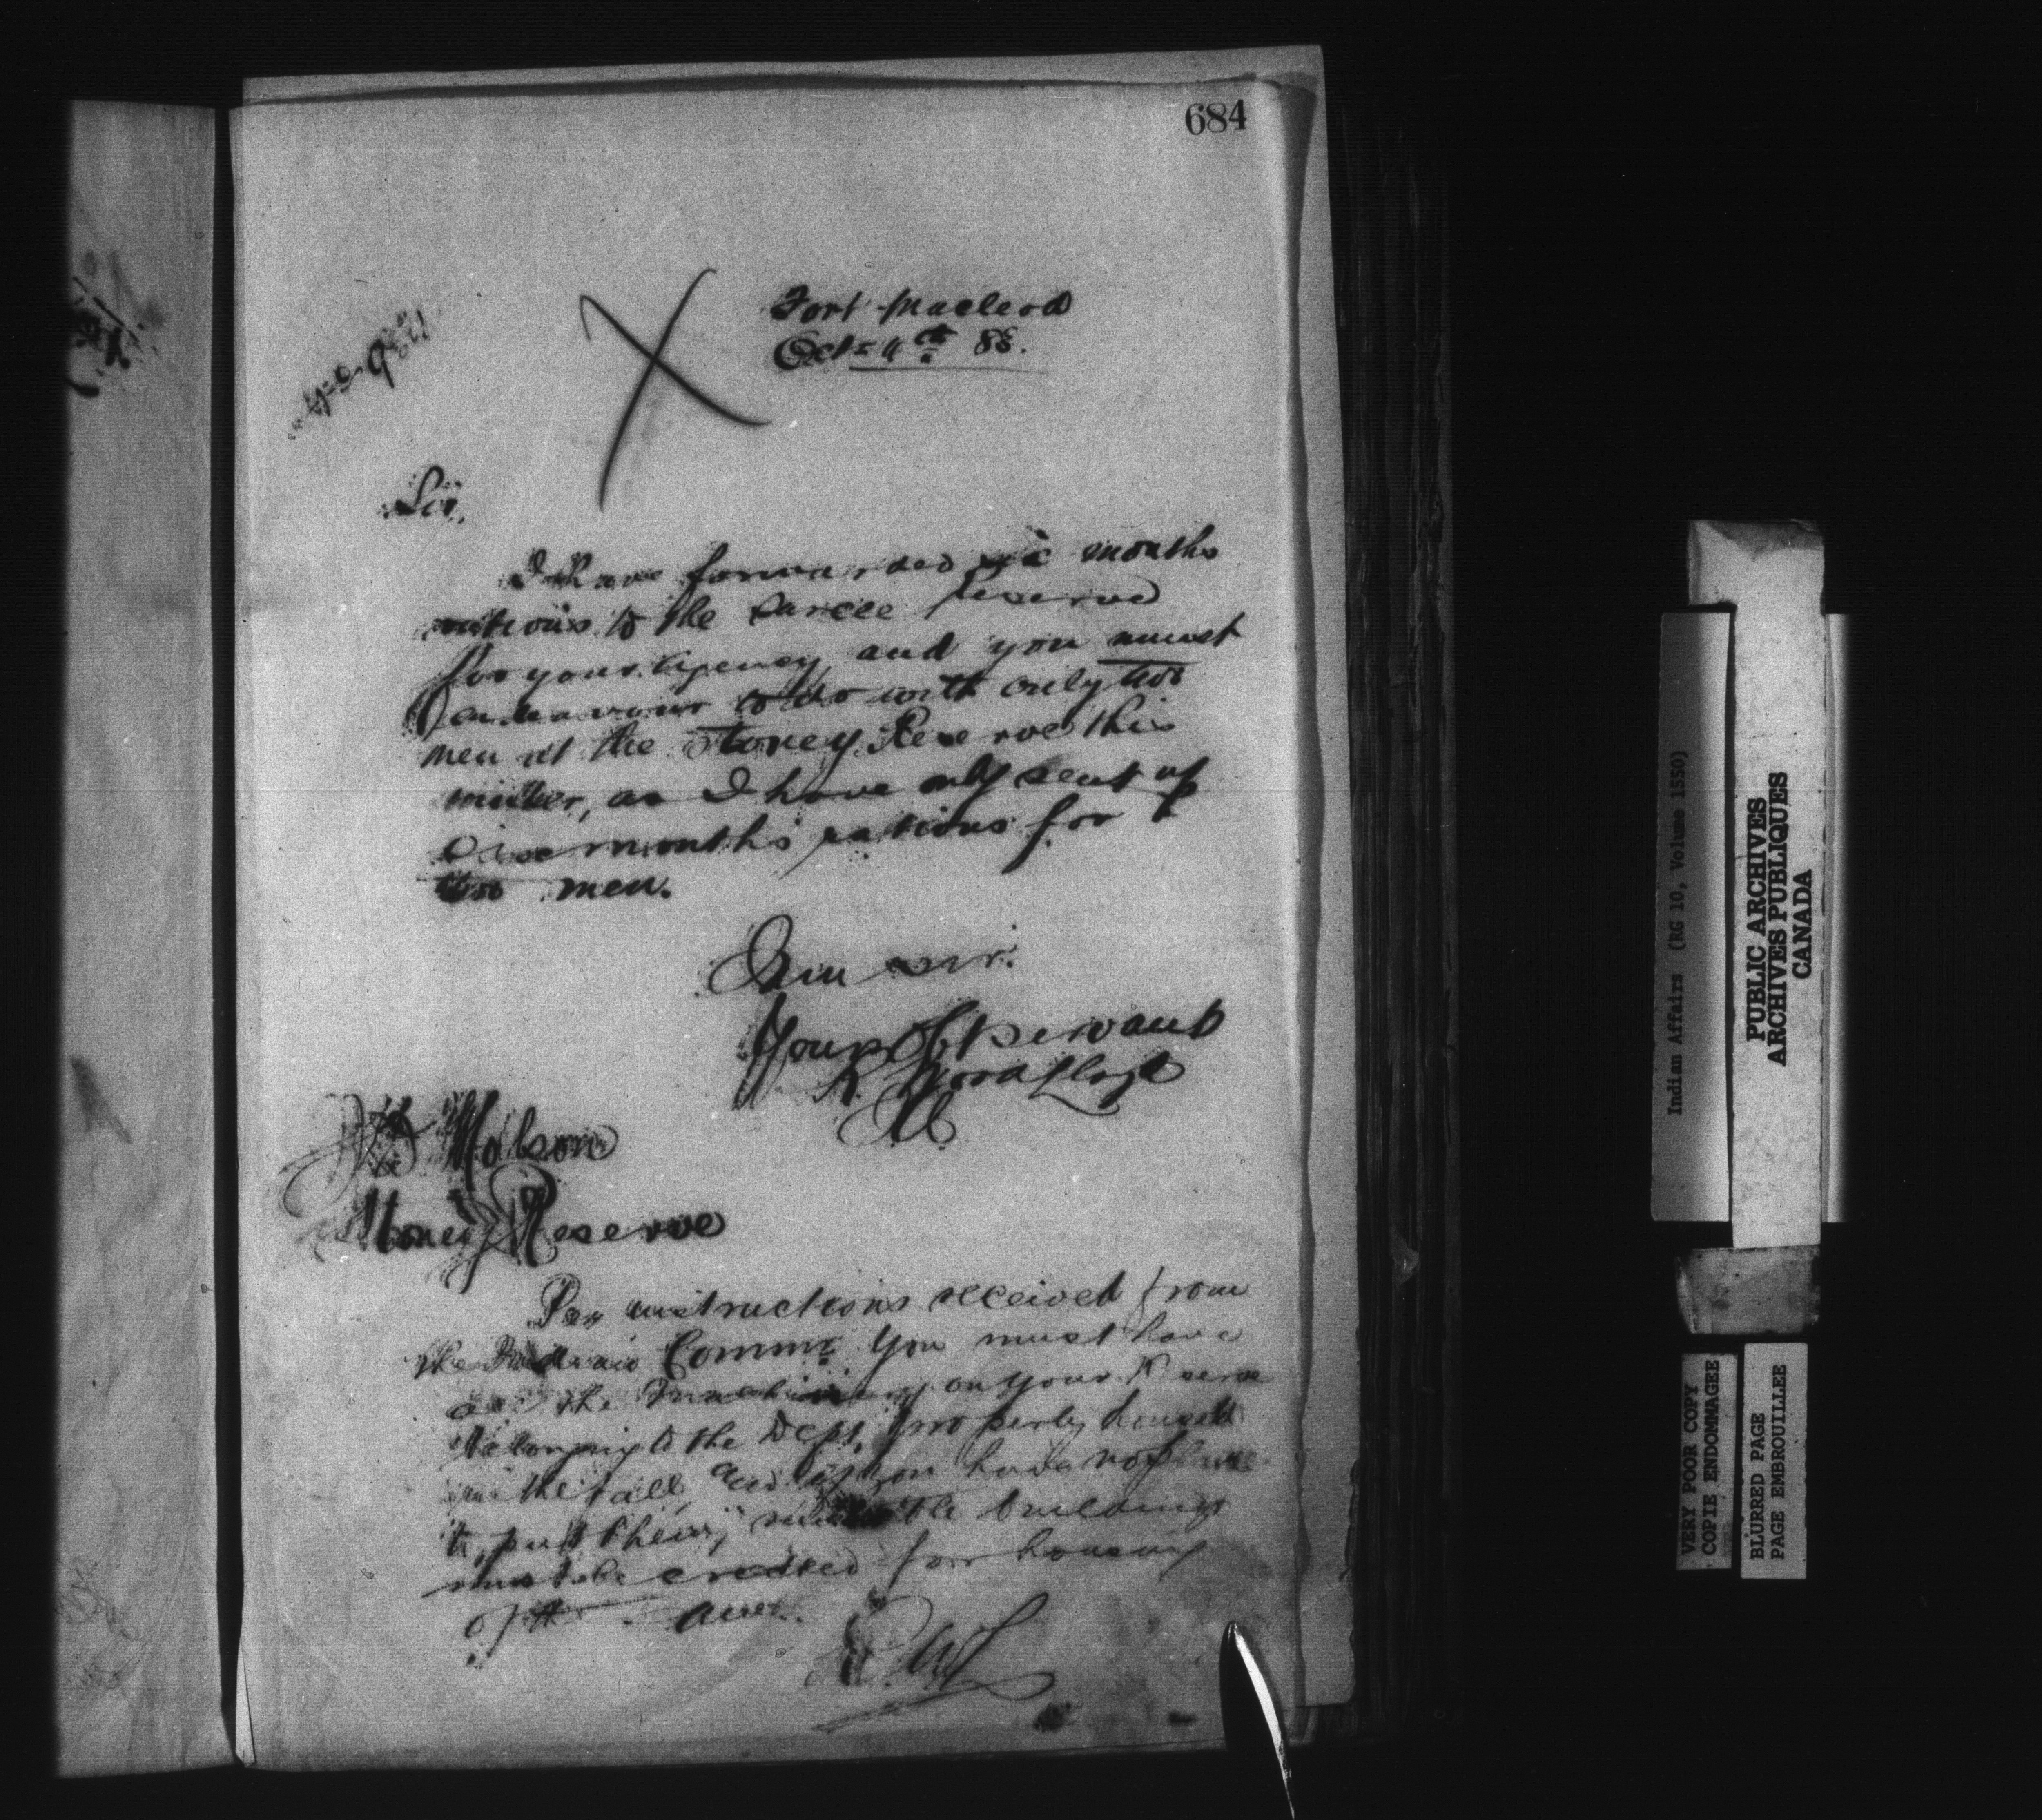 684
Fort Macleod
Oct 4th 83.
Sir,
I have forwarded six months
rations to the Sarcee Reserve
for your Agency, and you must
endeavour to do with only two
men at the Stoney Reserve this
winter, as I have only sent up
six months rations for
two men.
Am sir.
Your Obt Servant
R
Stoney Reserve
Per instructions received from
the Indian Commr You must have
all the machinery on your Reserve
belonging to the Dept. properly housed
in the fall, and if you have no place
to put them, suitable buildings
must be erected for housing
of
PUBLIC ARCHIVES
ARCHIVES PUBLIQUES
CANADA
Indian Affairs (RG 10, Volume 1550)
VERY POOR COPY
COPIE ENDOMMAGEE
BLURRED PAGE
PAGE EMBROUILLEE